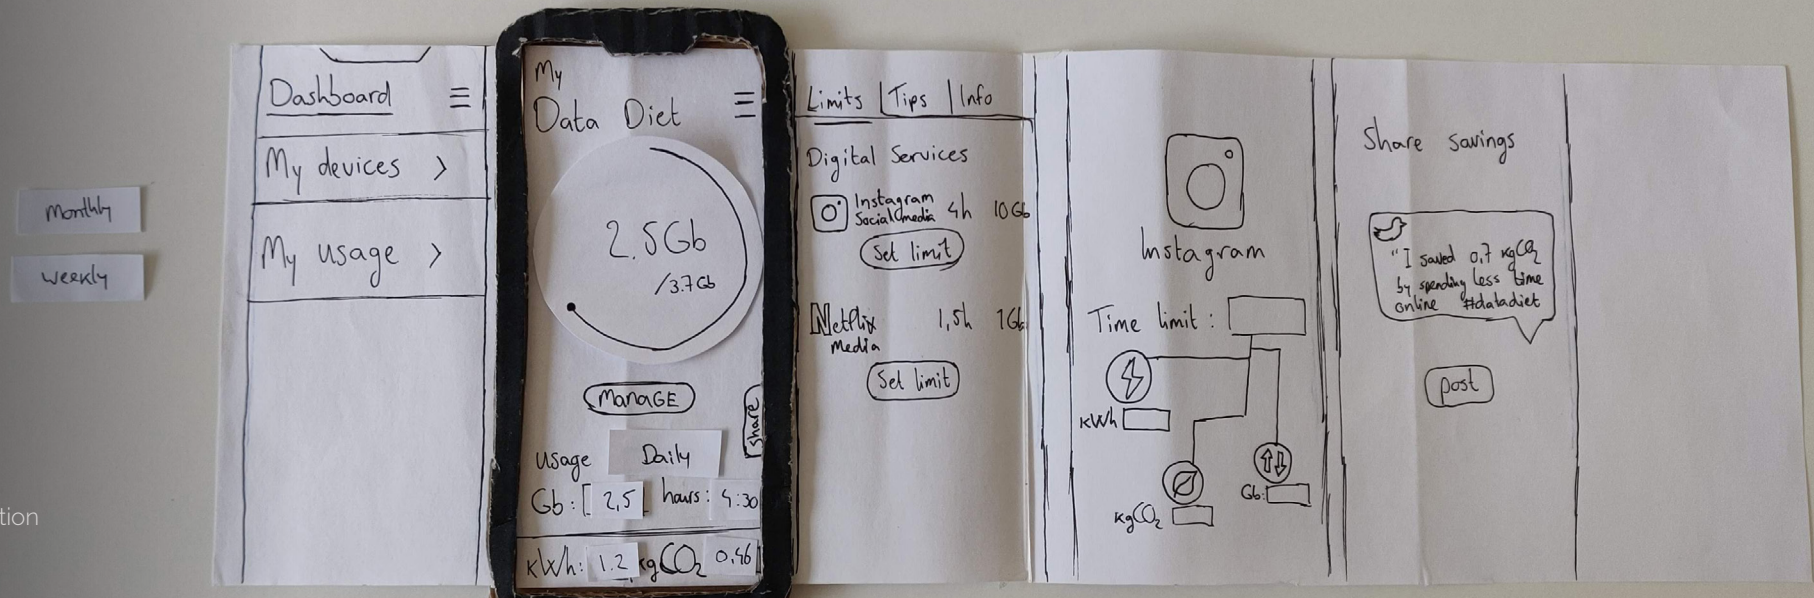 monthly
weekly
tion
Dashboard
My devices >
My usage >
My
Data Diet
2.5Gb
/3.7Gb
MANAGE
share
usage Daily
Gb: 2,5 hours: 4:30
KWh: 1.2 kgCO2 0,46
Limits | Tips | Info
Digital Services
Instagram
Social media 4h 10Gb
Set limit
Netflix 1,5h 1Gb
Media
Set limit
Instagram
Time limit:
KWh
Gb:
KgCO2
Share savings
"I saved 0,7 KgCO2
by spending less time
online #datadiet
post